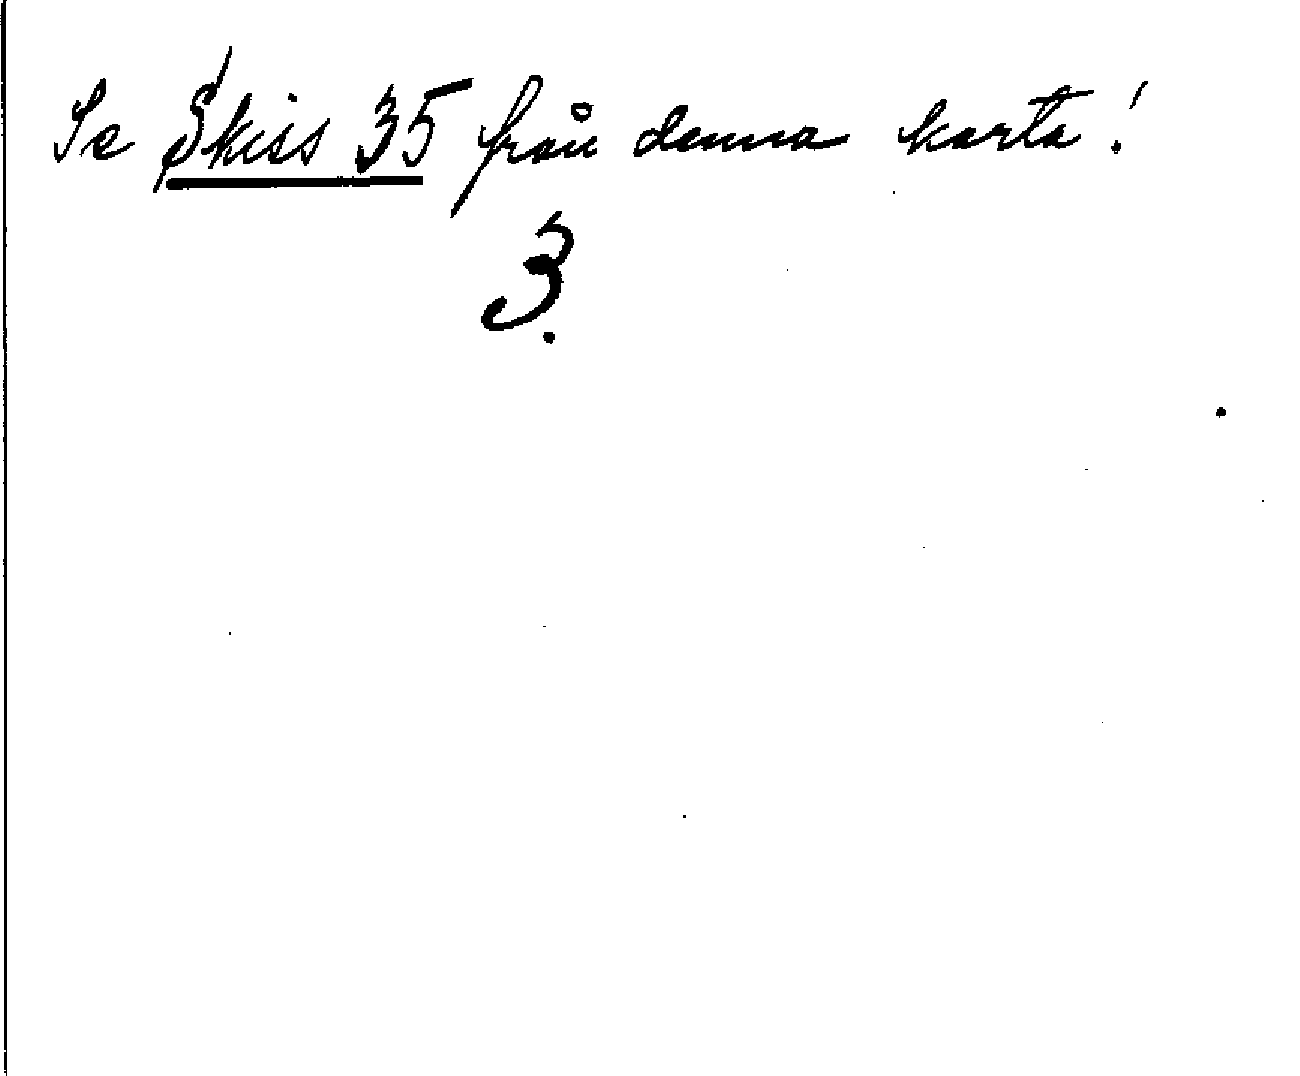 Se Skiss 35 från denna karta!
3.